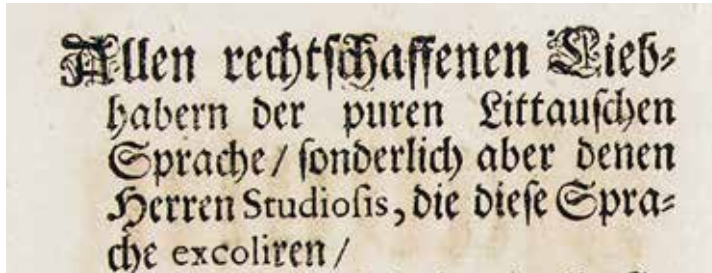 Allen rechtschaffenen Lieb⸗
habern der puren Littauſchen
Sprache/ ſonderlich aber denen
Herren Studioſis, die dieſe Spra⸗
che excoliren/